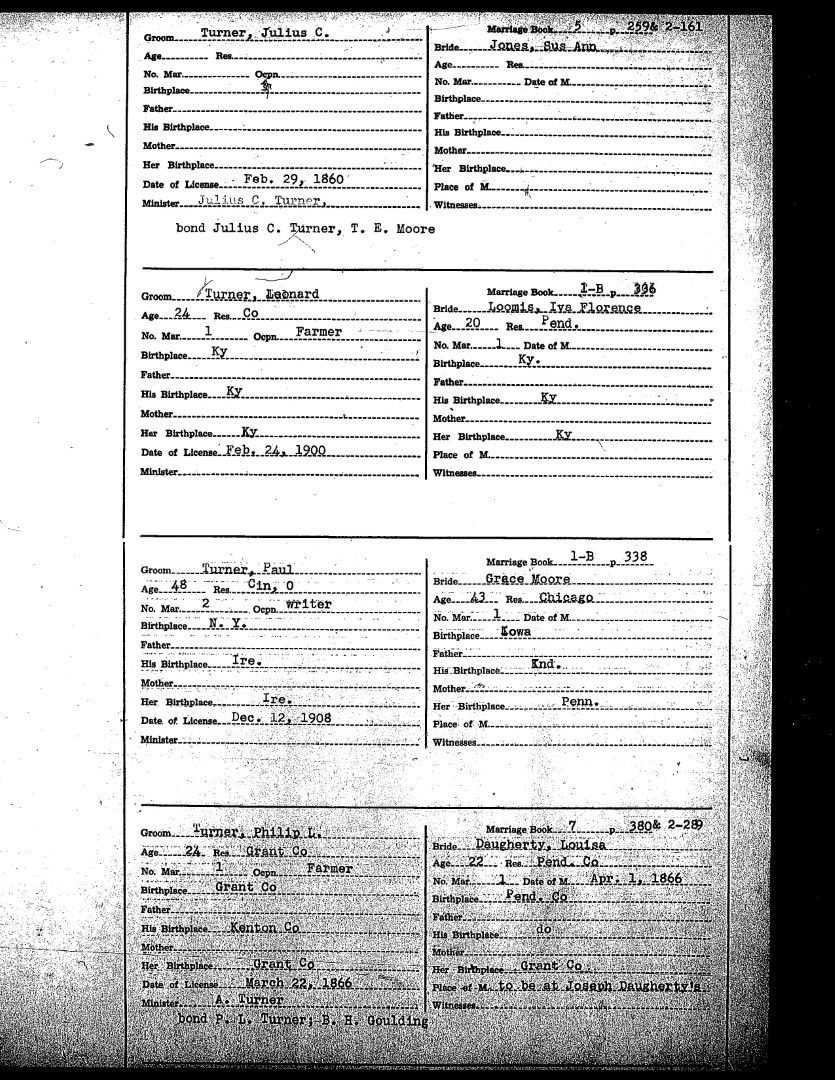 Groom Turner, Julius C.
Age Res.
No. Mar. Ocpn.
Birthplace
Father
His Birthplace
Mother
Her Birthplace
Date of License Feb. 29, 1860
Minister Julius C. Turner,
Marriage Book 5 p. 259& 2-161
Bride Jones, Sus Ann
Age Res.
No. Mar. Date of M.
Birthplace
Father
His Birthplace
Mother
Her Birthplace
Place of M.
Witnesses
bond Julius C. Turner, T. E. Moore
Groom Turner, Leonard
Age 24 Res. Co
No. Mar. 1 Ocpn. Farmer
Birthplace Ky
Father
His Birthplace Ky
Mother
Her Birthplace Ky
Date of License Feb. 24, 1900
Minister
Marriage Book 1-B p.
Bride Loomis, Iva Florence
Age 20 Res. Pend.
No. Mar. 1 Date of M.
Birthplace Ky.
Father
His Birthplace Ky
Mother
Her Birthplace Ky
Place of M.
Witnesses
Groom Turner, Paul
Age 48 Res. Cin, O
No. Mar. 2 Ocpn. writer
Birthplace N. Y.
Father
His Birthplace Ire.
Mother
Her Birthplace Ire.
Date of License Dec. 12, 1908
Minister
Marriage Book 1-B p. 338
Bride Grace Moore
Age 43 Res. Chicago
No. Mar. 1 Date of M.
Birthplace Iowa
Father
His Birthplace Ind.
Mother
Her Birthplace Penn.
Place of M.
Witnesses
Groom Turner, Philip L.
Age 24 Res. Grant Co
No. Mar. 1 Ocpn. Farmer
Birthplace Grant Co
Father
His Birthplace Kenton Co
Mother
Her Birthplace Grant Co
Date of License March 22, 1866
Minister A. Turner
Marriage Book 7 p. 380& 2-289
Bride Daugherty, Louisa
Age 22 Res. Pend. Co
No. Mar. 1 Date of M. Apr. 1, 1866
Birthplace Pend. Co
Father
His Birthplace do
Mother
Her Birthplace Grant Co
Place of M. to be at Joseph Daugherty's
Witnesses
bond P. L. Turner; B. H. Goulding